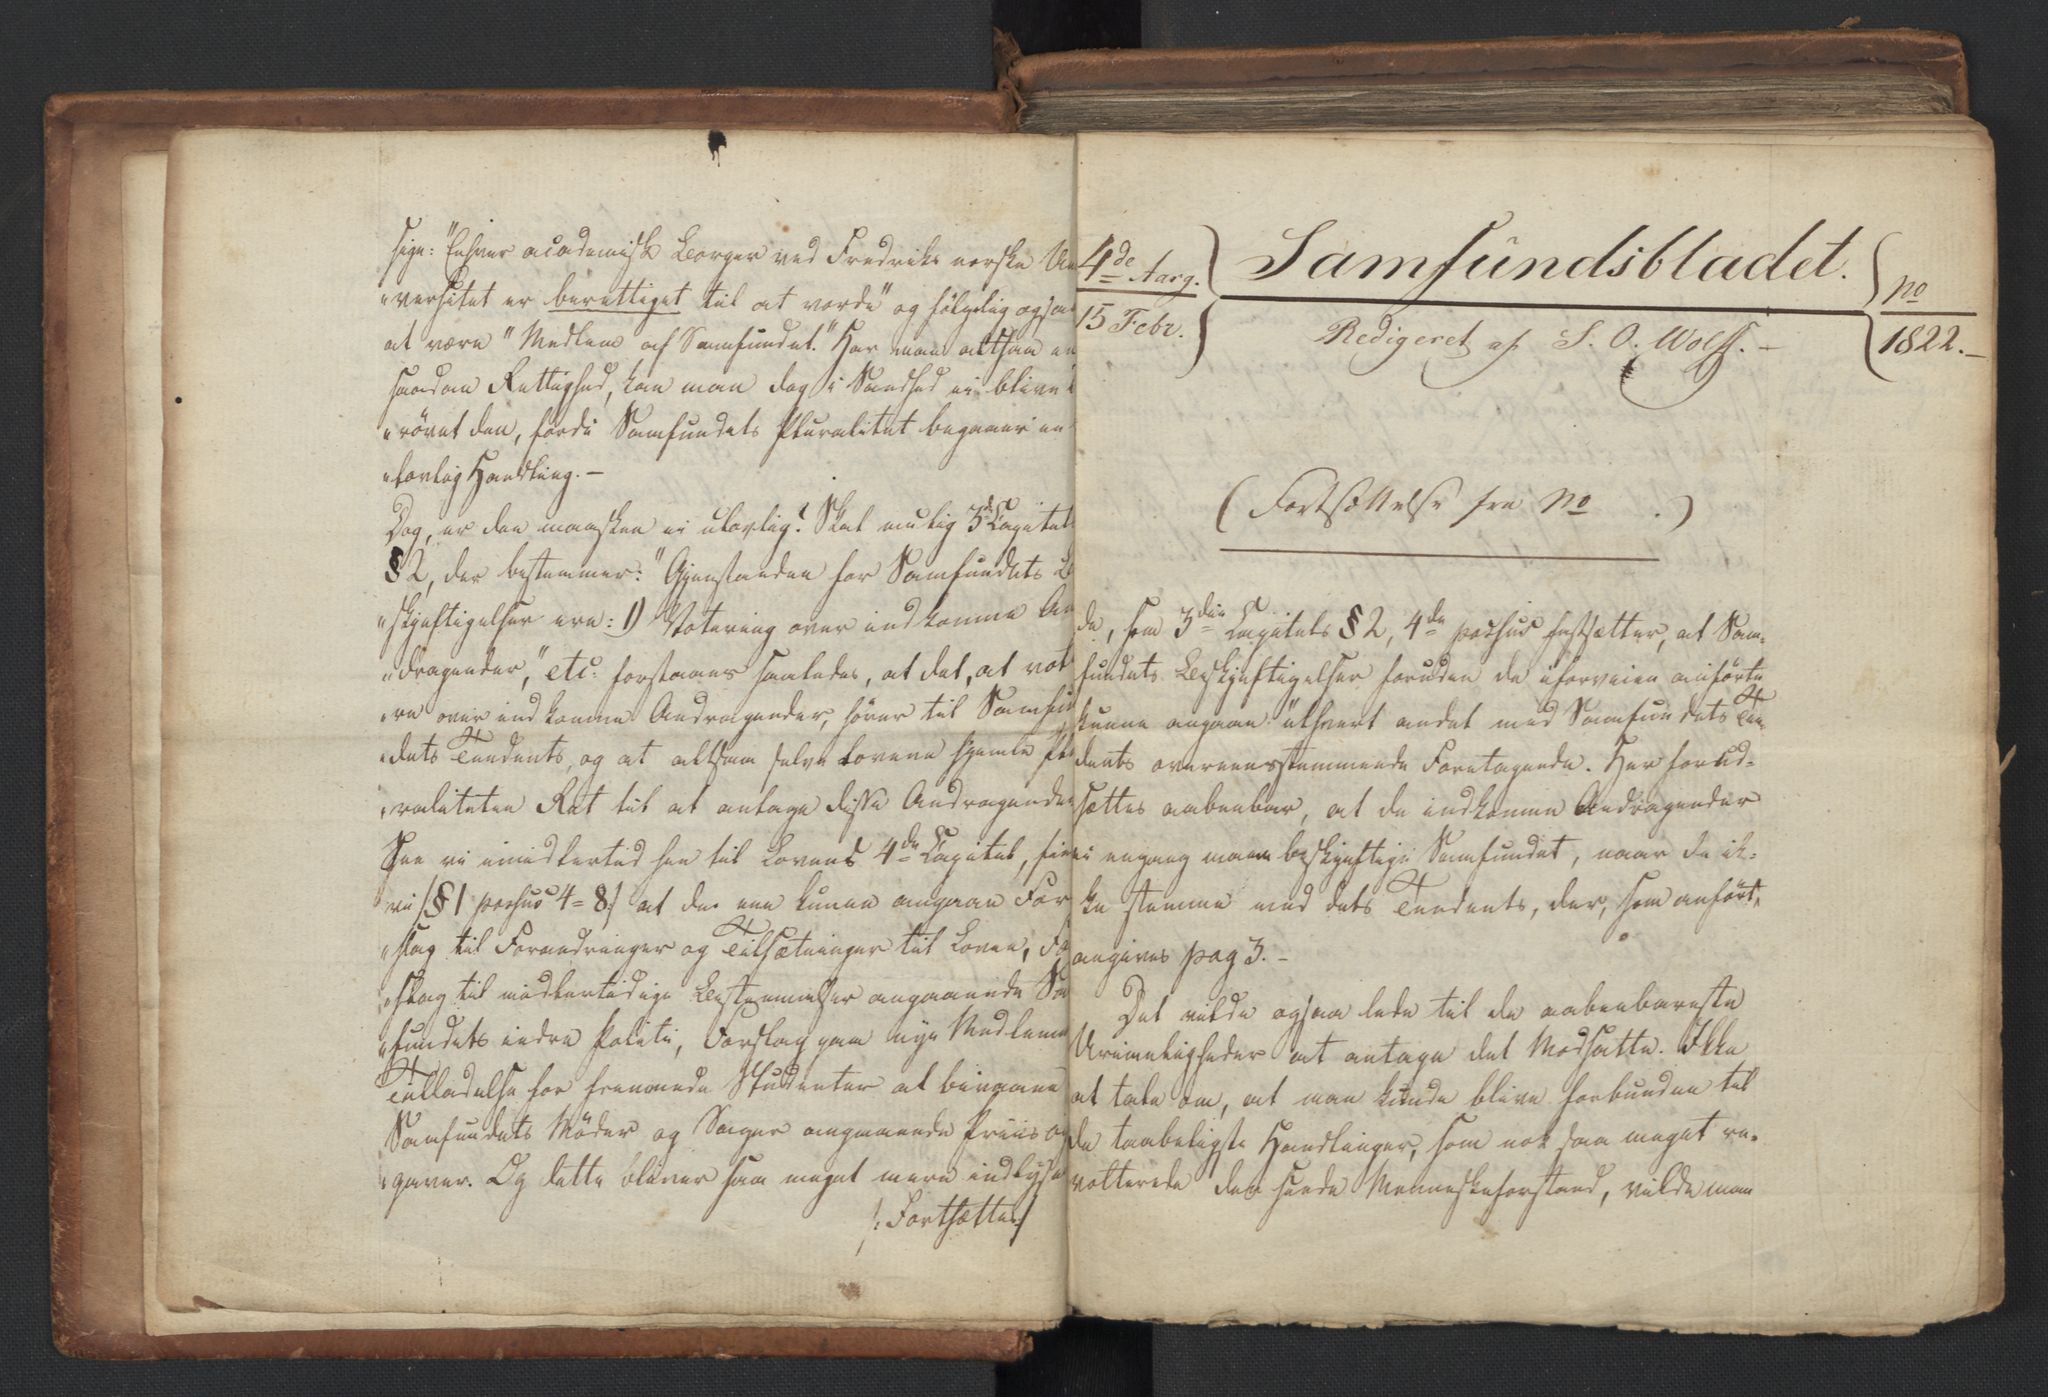 sige: "Enhver academisk Borger ved Fredriks norske Un
"versitet er berettiget til at vorde" og følgelig ogsaa
at være "Medlem af Samfundet." Har man altsaa en
saadan Rettighed, kan man dog i Sandhed ei blive
"røvet den, fordi Samfundets Pluralitet begaaer en
"lovlig Handling. —
Dog, er den maaskee ei ulovlig? Skal muelig 3d Capitel
§ 2, der bestemmer: "Gjenstanden for Samfundets B
"skjeftigelser ere: 1) Votering over indkomne An
"dragender," etc. forstaaes saaledes, at det, at vot
"re over indkomne Andragender, hører til Samfun
"dets Tendents, og at altsaa selve Lovene hjemle Plu
"raliteten Ret til at antage disse Andragender
See vi imidlertid hen til Lovens 4de Capitel, finde
vi /§ 1 passus 4 = 8:/ at der ene kunne angaae For
"slag til Forandringer og Tilsætninger til Loven, Fo
"slag til midlertidige Bestemmelser angaaende Sa
"fundets indre Politi, Forslag paa nye Medlemm
Tilladelse for fremmede Studenter at bivaane
Samfundets Møder og Sager angaaende Priisop
"gaver. Og dette bliver saa meget mere indlyse
/: Fortsættes :/
4de Aarg.
15 Febr.
Samfundsbladet.
Redigeret af S. O. Wolff. —
No
1822. —
( Fortsættelse fra No . )
de, som 3die Capitels § 2, 4de passus fastsætter, at Sam-
fundets Beskjeftigelser foruden de iforveien anførte
kunne angaae "ethvert andet med Samfundets Ten-
dents overeensstemmende Foretagende. Her forud-
sættes aabenbar, at de indkomne Andragender
ei engang maae beskjeftige Samfundet, naar de ik-
ke stemme med dets Tendents, der, som anført,
angives pag 3. —
Det vilde ogsaa lede til de aabenbareste
Urimeligheder at antage det Modsatte. Ikke
at tale om, at man kunde blive forbunden til
de taabeligste Handlinger, som nok saa meget re-
volterede den sunde Menneskeforstand, vilde man